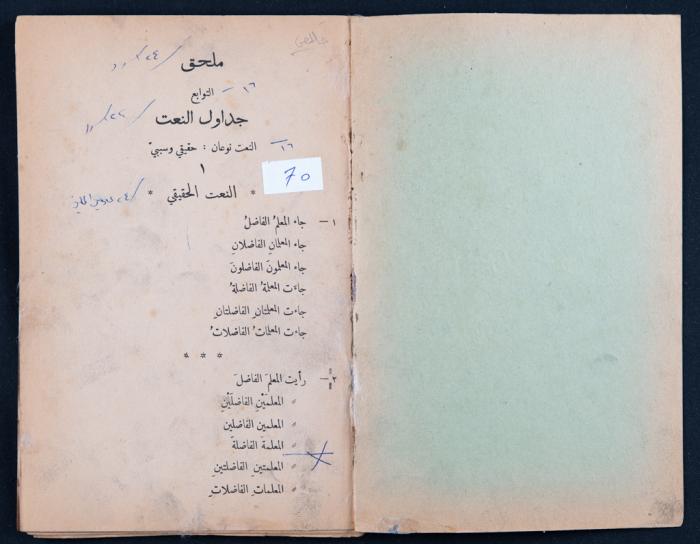 ملحق
التوابع — ١٦
جداول النعت
النعت نوعان : حقيقي وسببيّ — ١٦
١
70
* النعت الحقيقي *
١ — جاء المعلمُ الفاضلُ
جاء المعلمانِ الفاضلانِ
جاء المعلمونَ الفاضلونَ
جاءت المعلمةُ الفاضلةُ
جاءت المعلمتانِ الفاضلتانِ
جاءت المعلماتُ الفاضلاتُ
* * *
٢ — رأيت المعلمَ الفاضلَ
» المعلمَيْنِ الفاضلَيْنِ
» المعلمين الفاضلين
» المعلمةَ الفاضلةَ
» المعلمتينِ الفاضلتينِ
» المعلماتِ الفاضلاتِ